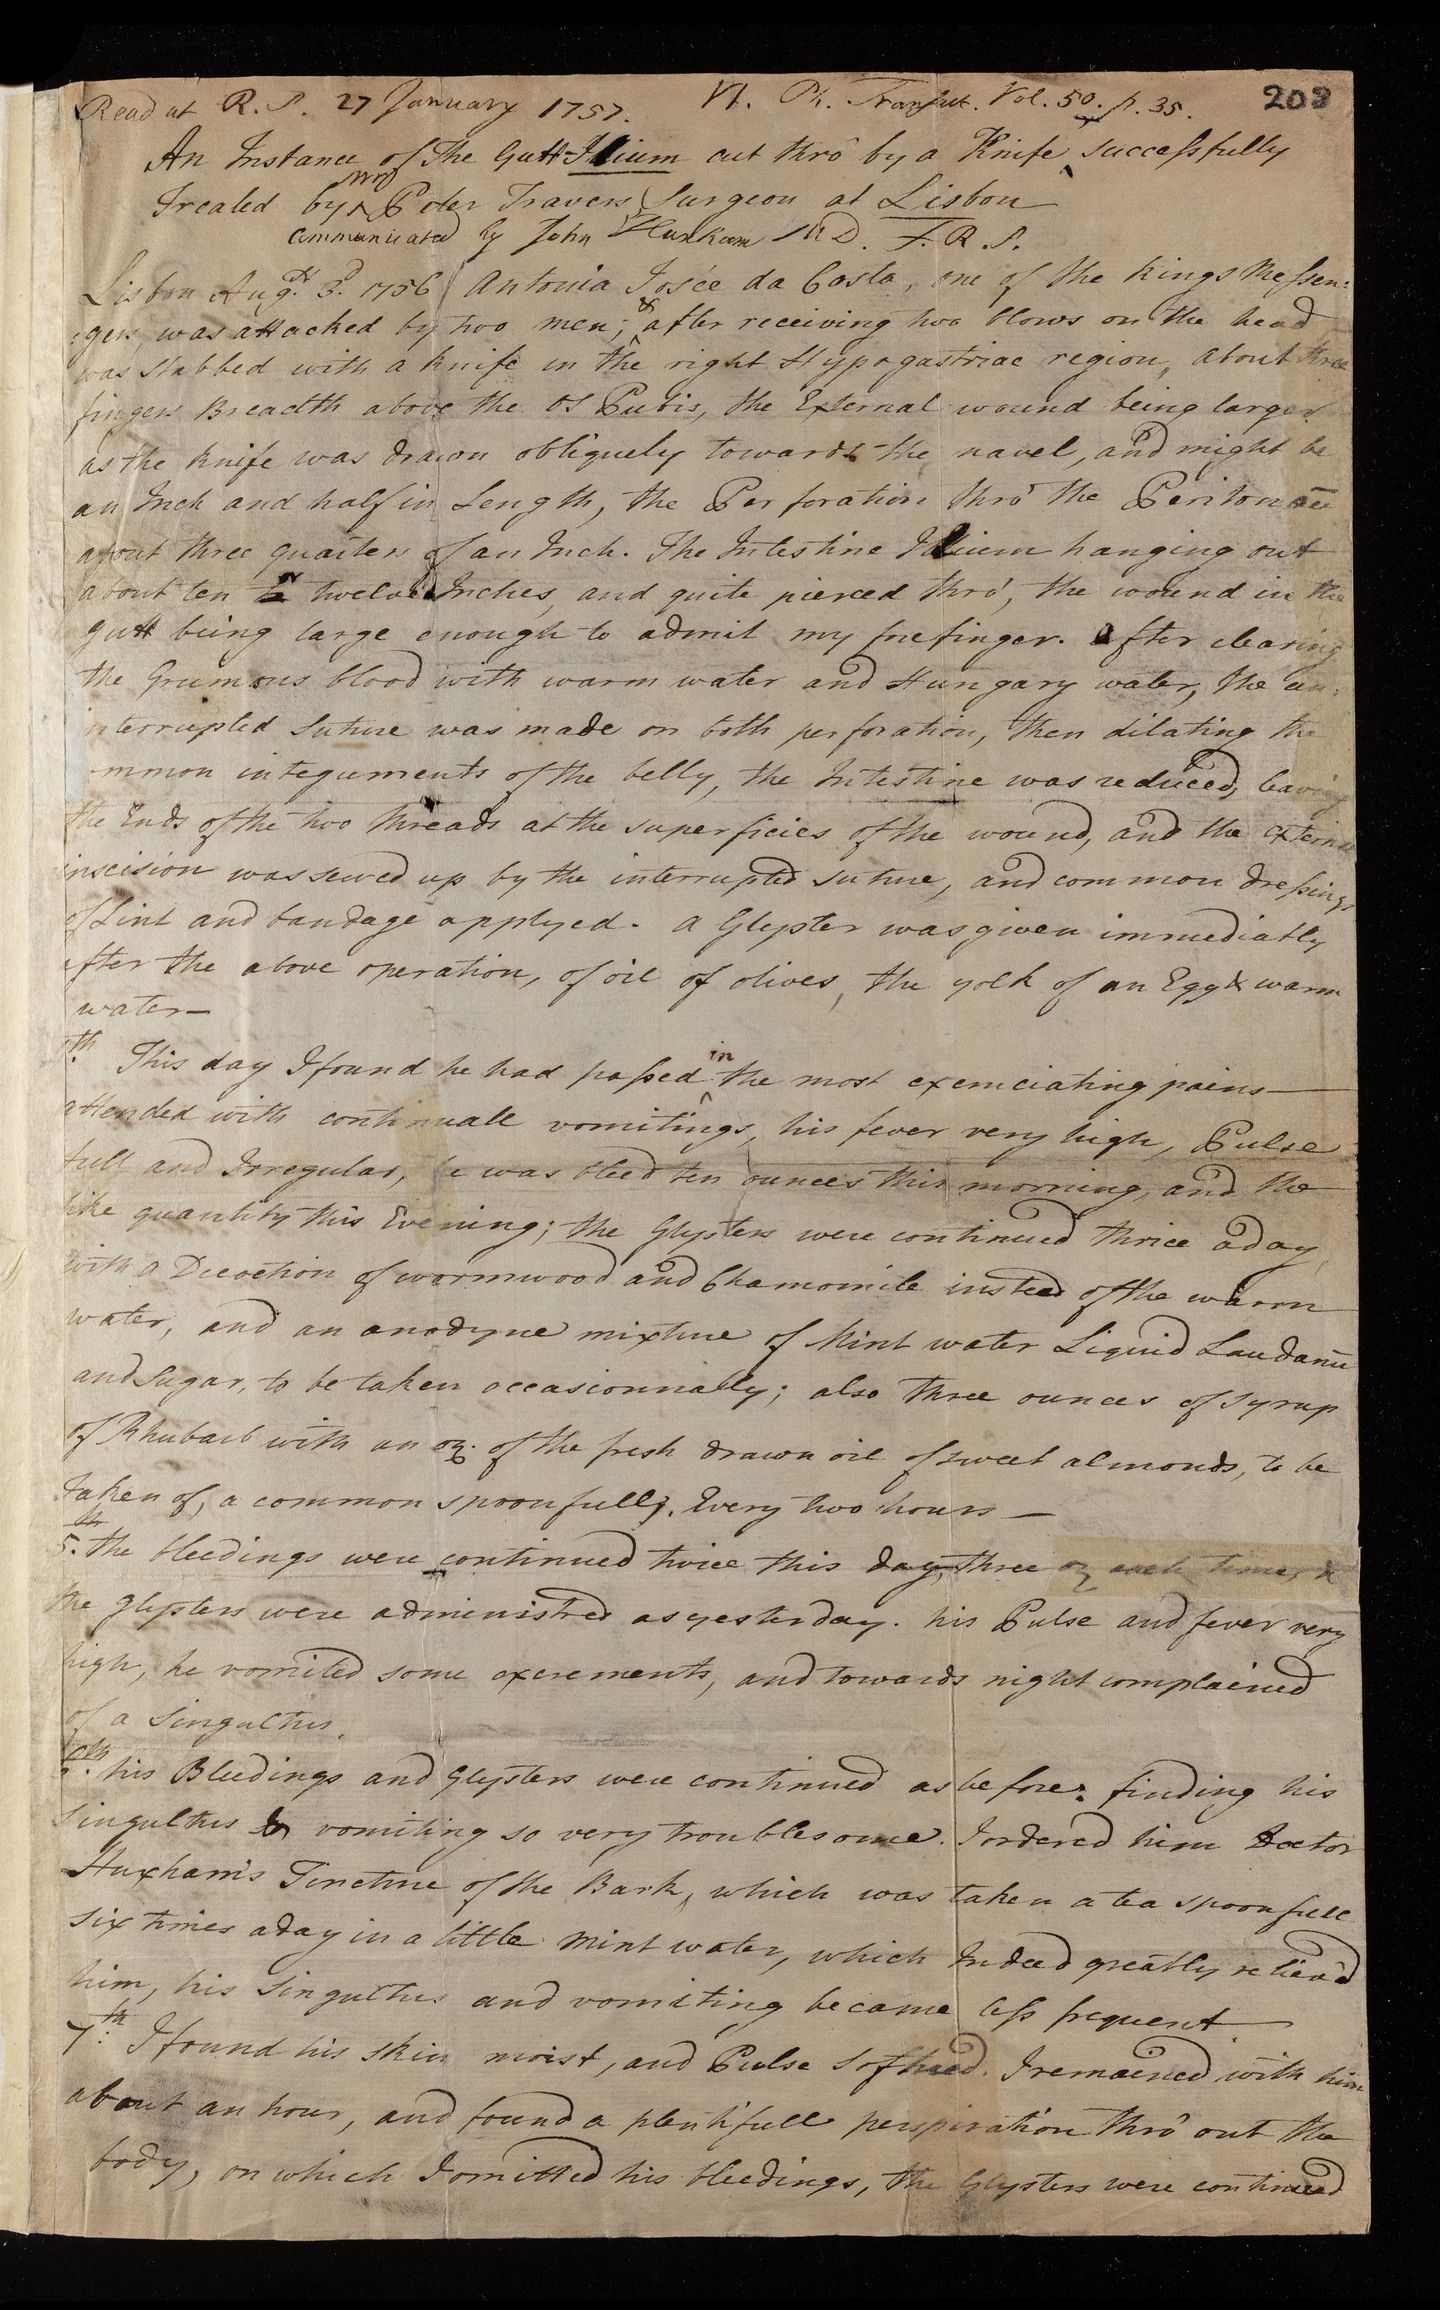 Read at R. S. 27 January 1757. Vt. Ph. Transact. Vol. 50. p. 35. 203
An Instance of the Gutt Ilium cut thrô by a Knife successfully
Treated by Mr Peter Travers Surgeon at Lisbon
Communicated by John Huxham M D. F. R. S.
Lisbon Augst. 3d. 1756 Antonia Josée da Costa, one of the kings Messen:
:gers, was attacked by two men; & after receiving two blows on the head
was stabbed with a knife in the right Hypogastriac region, about three
fingers Breadth above the Os Pubis, the External wound being larger
as the knife was drawn obliquely towards the navel, and might be
an Inch and half in Length, the Perforation thrô the Peritonæū
about three quarters of an Inch. The Intestine Ilium hanging out
about ten or twelve Inches, and quite pierced thrô, the wound in the
gutt being large enough to admit my forefinger. After clearing
the Grumous blood with warm water and Hungary water, the un:
interrupted suture was made on both perforation, then dilating the
mmon integuments of the belly, the Intestine was reduced, leaving
the Ends of the two threads at the superficies of the wound, and the external
inscision was sewed up by the interrupted suture, and common dressings
of Lint and bandage applyed. A Glyster was given immediatly
after the above operation, of oil of olives, the yolk of an Egg & warm
water—
th. This day I found he had passed in the most excruciating pains—
attended with continuall vomitings, his fever very high, Pulse
full and Irregular, he was bleed ten ounces this morning, and the
like quantity this Evening; the Glysters were continued thrice a day,
with a Decoction of wormwood and Chamomile instead of the warm
water, and an anodyne mixture of Mint water Liquid Laudanū
and Sugar, to be taken occasionnally; also three ounces of syrup
of Rhubarb with an oz. of the fresh drawn oil of sweet almonds, to be
taken of, a common spoonfull, Every two hours—
5.th the bleedings were continued twice this day, three oz each time, &
the Glysters were administred as yesterday. his Pulse and fever very
high, he vomited some excrements, and towards night complained
of a Singultus.
6th. his Bleedings and Glysters were continued as before: finding his
singultus & vomiting so very troublesome. I ordered him Doctor
Huxham's Tincture of the Bark, which was taken a tea spoonfull
six times a day in a little mint water, which Indeed greatly reliev'd
him, his Singultus and vomiting became less frequent—
7th: I found his skin moist, and Pulse softned. I remained with him
about an hour, and found a plentifull perspiration thrô out the
body, on which I omitted his bleedings, the Glysters were continued